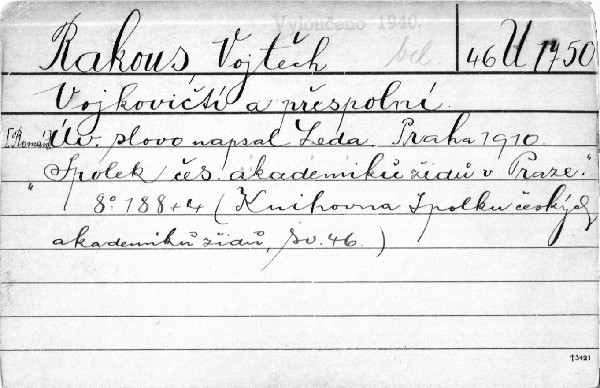 Vyloučeno 1940.
Rakous, Vojtěch bel. 46 U 1750
Vojkovičtí a přespolní.
[Román] Úv. slovo napsal Leda. Praha 1910.
"Spolek čes. akademiků židů v Praze."
8° 188+4 (Knihovna Spolku českých
akademiků židů, sv. 46.)
†3421